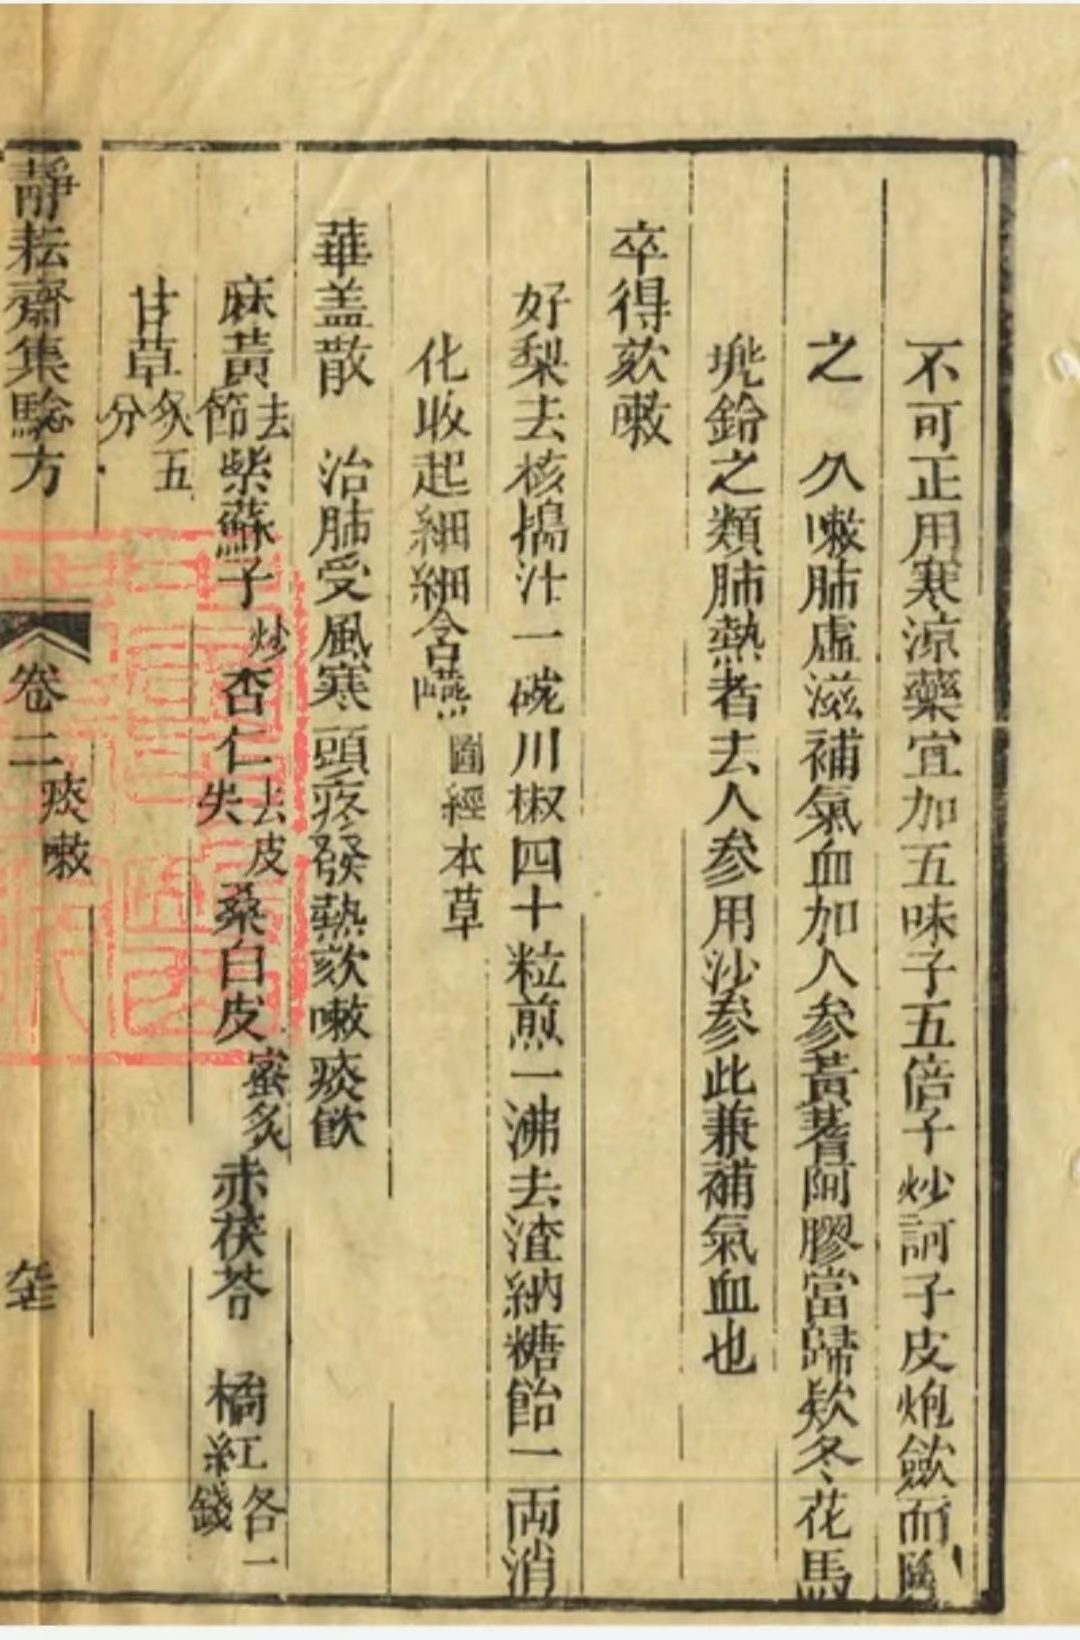 不可正用寒涼藥宜加五味子五倍子炒訶子皮炮歛而
之　久嗽肺虛滋補氣血加人參黃蓍阿膠當歸款冬花馬
兠鈴之類肺熱者去人參用沙參此兼補氣血也
卒得欬嗽
好梨去核搗汁一碗川椒四十粒煎一沸去渣納糖飴一両消
化收起細細含嚥圖經本草
華盖散　治肺受風寒頭疼發熱欬嗽痰飲
麻黃去節紫蘇子炒杏仁去皮尖桑白皮蜜炙赤茯苓　橘紅各一錢
甘草炙五分
靜耘齋集驗方　卷二　痰嗽